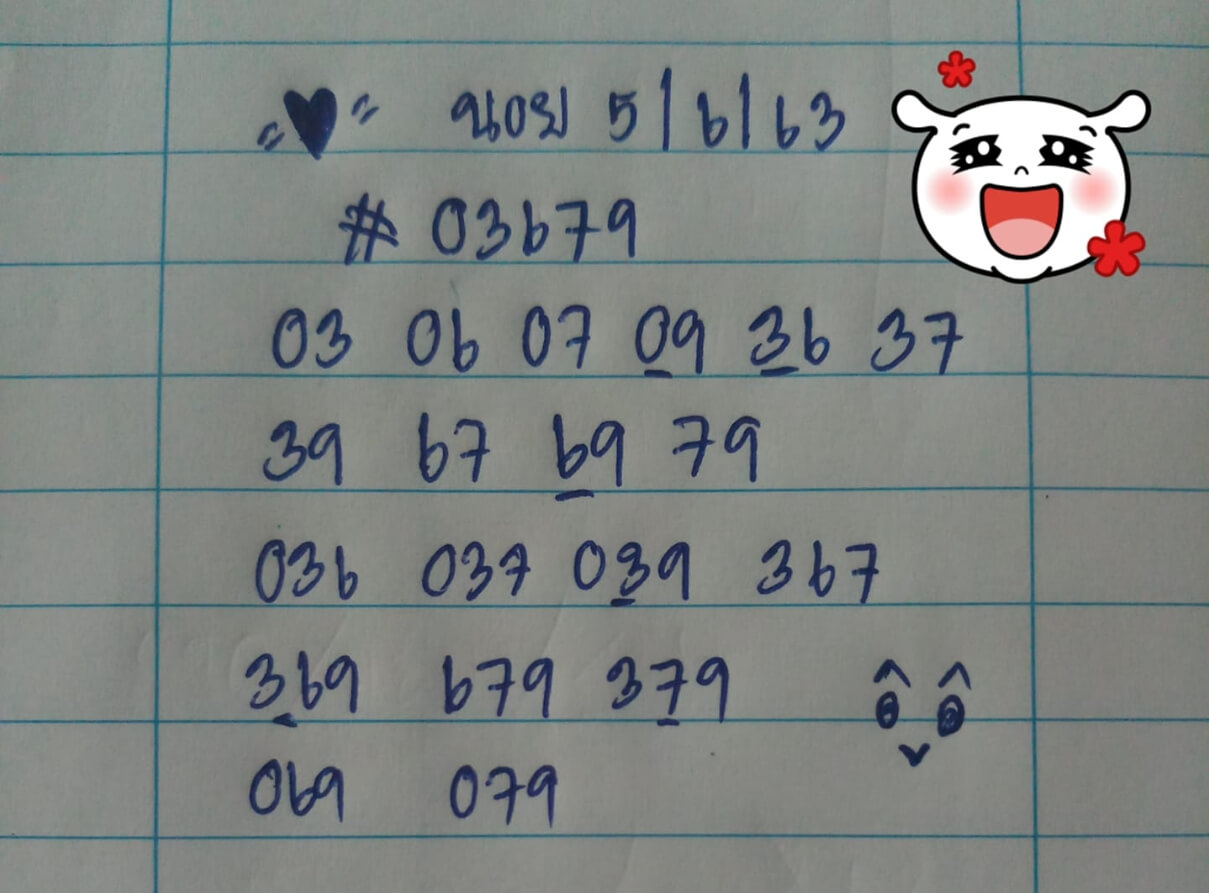 ฆอย 5/6/63
# 03679
03 06 07 09 36 37
39 67 69 79
036 037 039 367
369 679 379
069 079